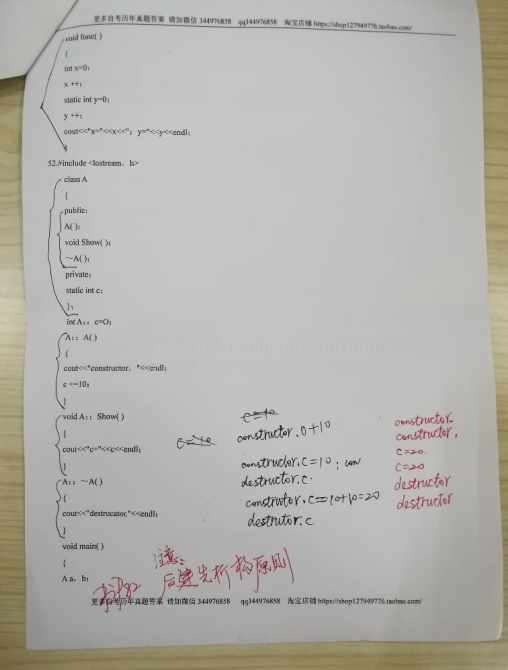 更多自考历年真题答案 请加微信 344976858 qq344976858 淘宝店铺 https://shop127949776.taobao.com/
void func( )
{
int x=0;
x ++;
static int y=0;
y ++;
cout<<"x="<<x<<"; y="<<y<<endl;
}
52.#include <iostream. h>
class A
{
public:
A( );
void Show( );
～A( );
private:
static int c;
};
int A:: c=O;
A:: A()
{
cout<<"constructor. "<<endl;
c +=10;
}
void A:: Show( )
{
cout<<"c="<<c<<endl;
}
A:: ～A()
{
cout<<"destrucator."<<endl;
}
void main( )
{
A a, b;
constructor. 0+10
constructor. C=10; con
destructor. c.
construtor. C=10+10=20
destrutor. c
constructor.
constructor.
C=20.
C=20
destructor
destructor
注意:
后建先析构原则
书P82
更多自考历年真题答案 请加微信 344976858 qq344976858 淘宝店铺 https://shop127949776.taobao.com/